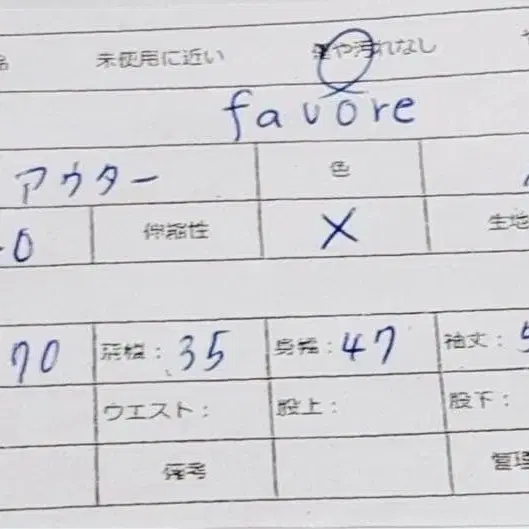 未使用に近い 傷や汚れなし
favore
アウター 色
伸縮性 X 生地
70 肩幅: 35 身幅: 47 袖丈:
ウエスト: 股上: 股下:
備考 管理